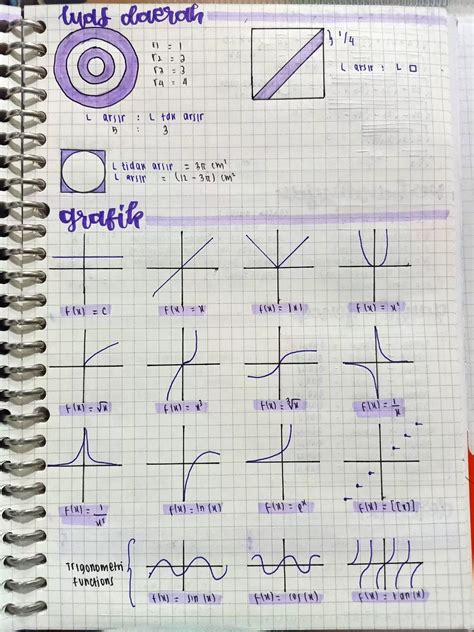 luas daerah
r1 = 1
r2 = 2
r3 = 3
r4 = 4
L arsir : L tdk arsir
5 : 3
} 1/4
L arsir : L □
L tidak arsir = 3π cm²
L arsir = (12 - 3π) cm²
grafik
f(x) = c
f(x) = x
f(x) = |x|
f(x) = x²
f(x) = √x
f(x) = x³
f(x) = ³√x
f(x) = 1/x
f(x) = ln(x)
f(x) = [[x]]
Trigonometri
functions
f(x) = sin (x)
f(x) = cos (x)
f(x) = tan (x)